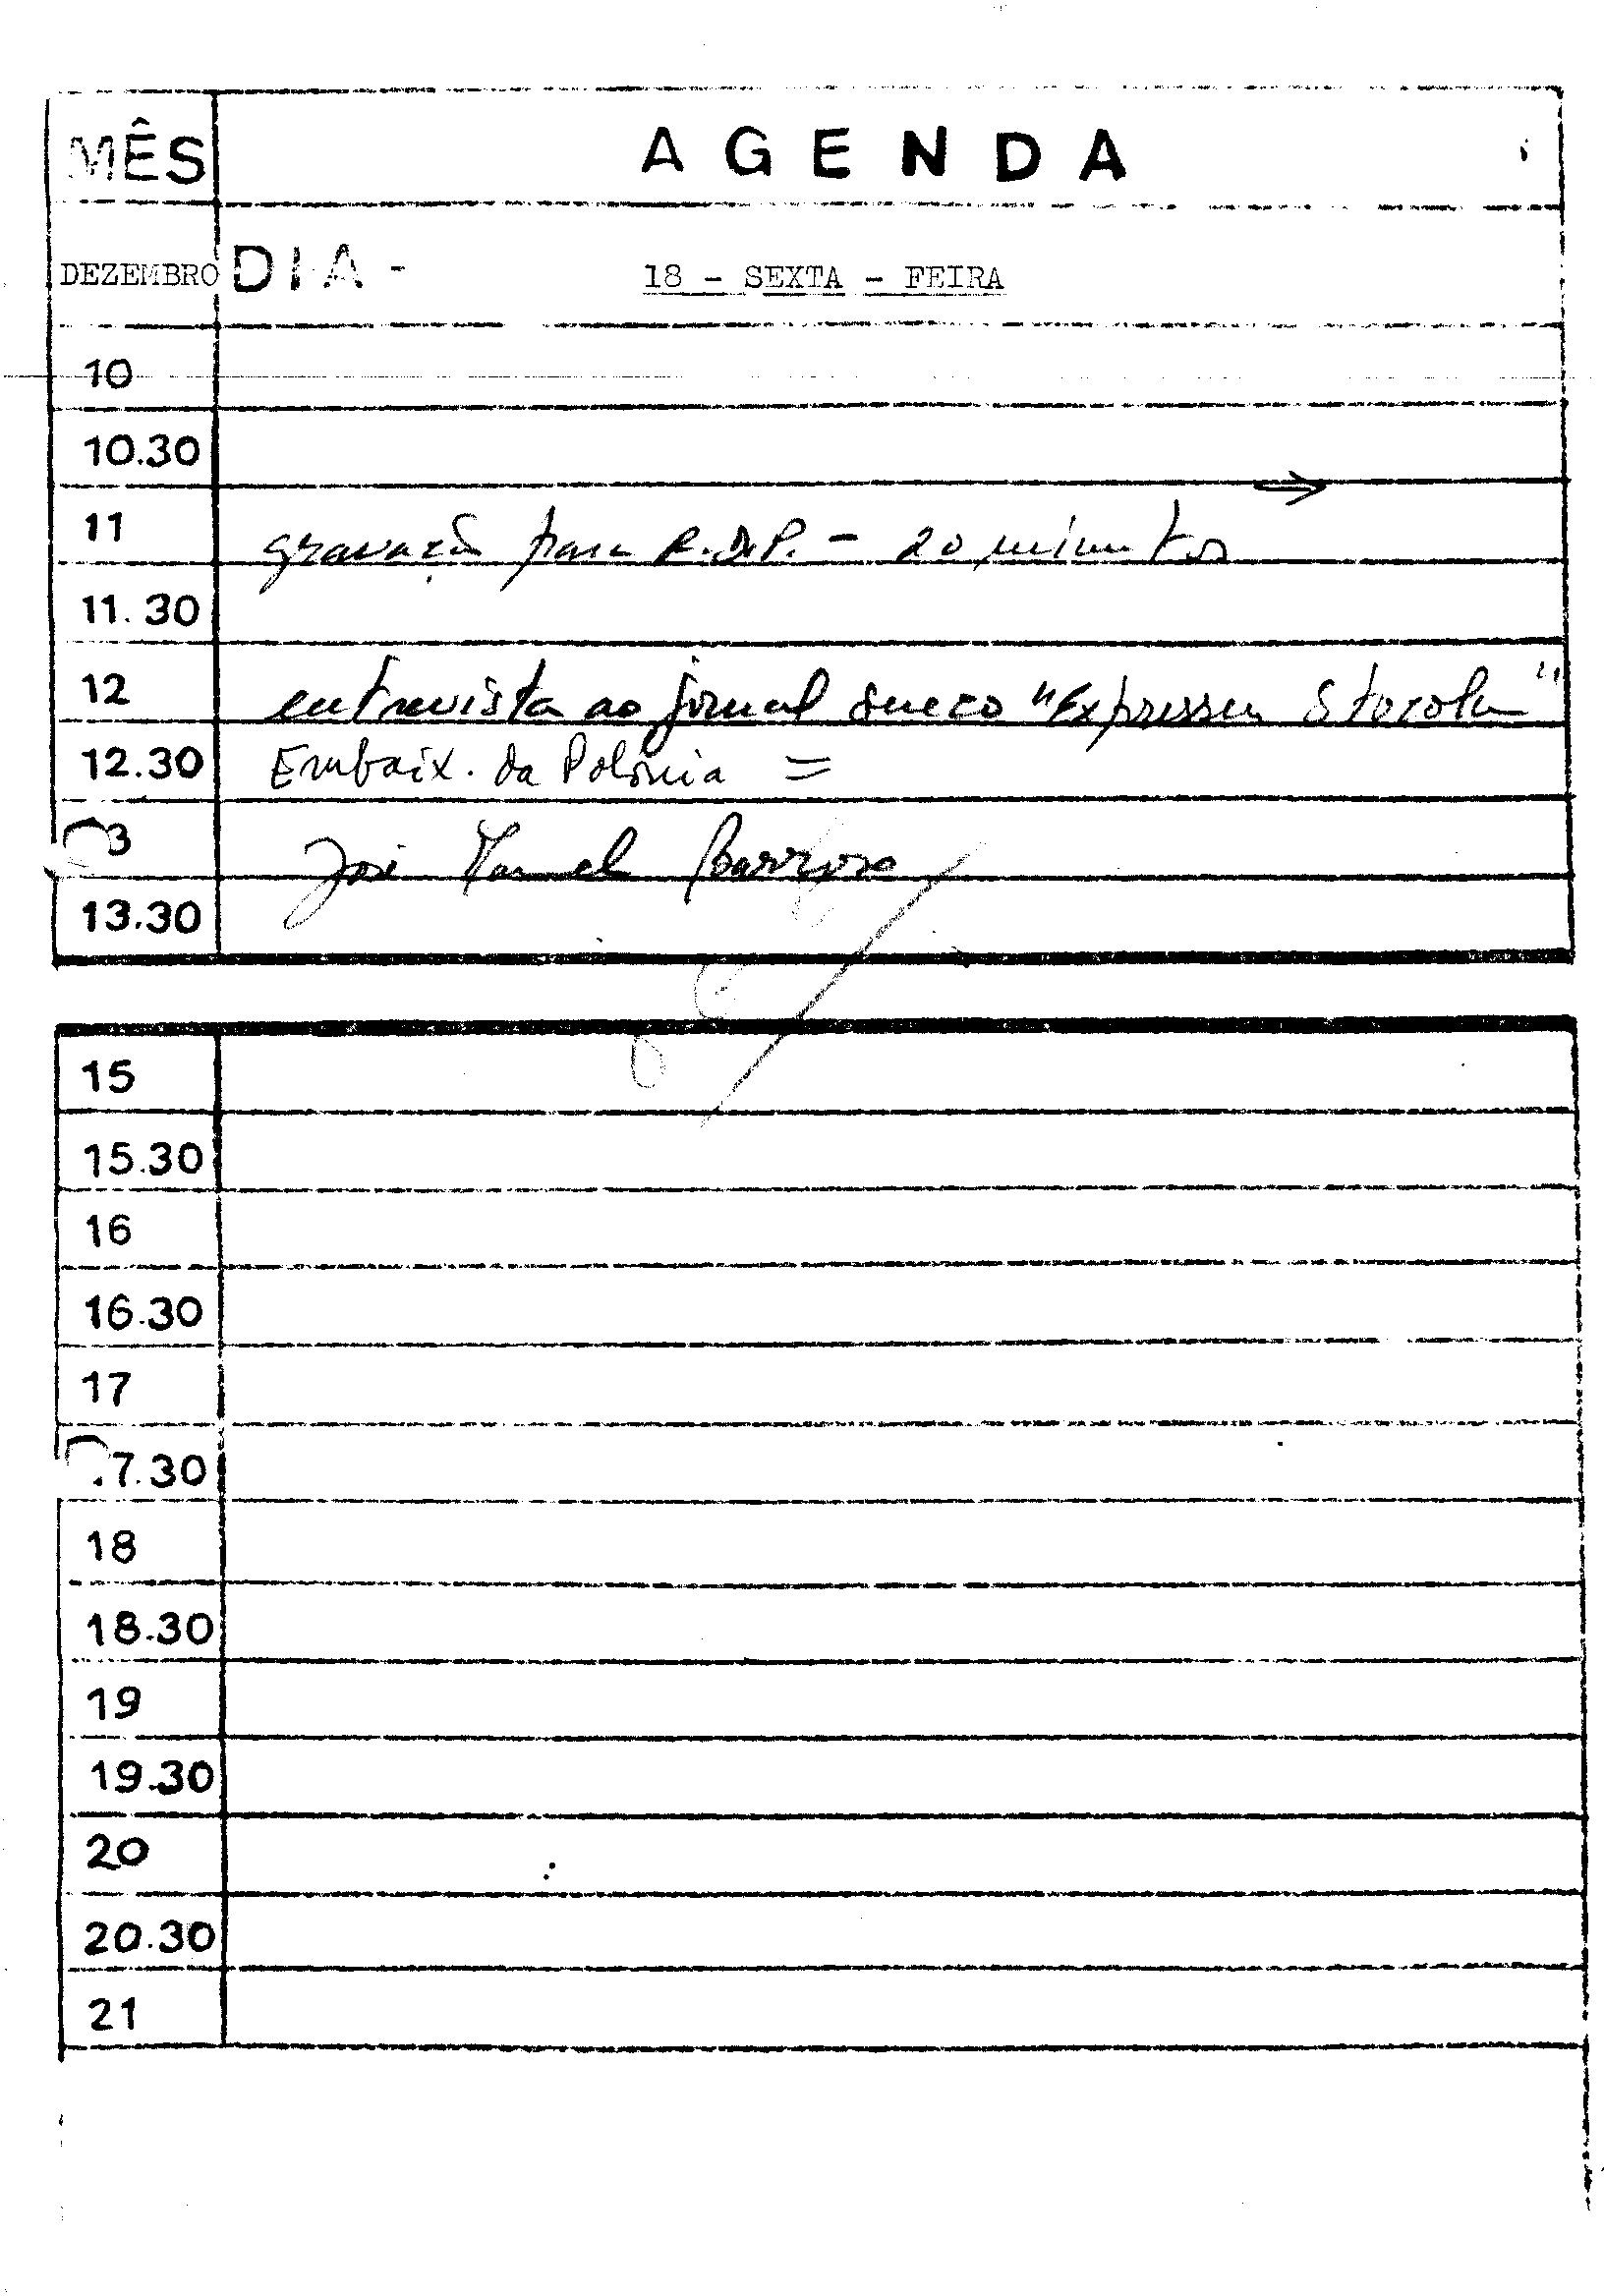 MÊS AGENDA
DEZEMBRO DIA - 18 - SEXTA - FEIRA
10
10.30
11 gravação para R.D.P. - 20 minutos
11.30
12 entrevista ao jornal sueco "Expressen
12.30 Embaix. da Polónia =
3 José Manuel Barroso
13.30
15
15.30
16
16.30
17
.7.30
18
18.30
19
19.30
20
20.30
21